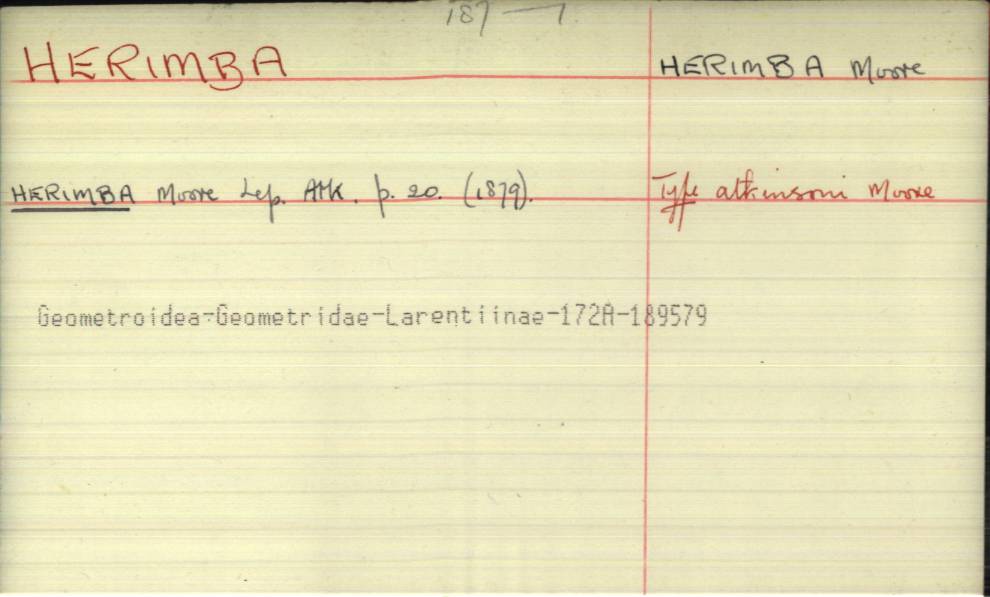 187—7.
HERIMBA
HERIMBA Moore
HERIMBA Moore Lep. Atk. p. 20. (1879).
Type atkinsoni Moore
Geometroidea-Geometridae-Larentiinae-172A-189579